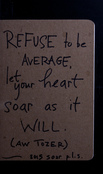 REFUSE to be
AVERAGE,
let your heart
soar as it
WILL.
(AW TOZER)